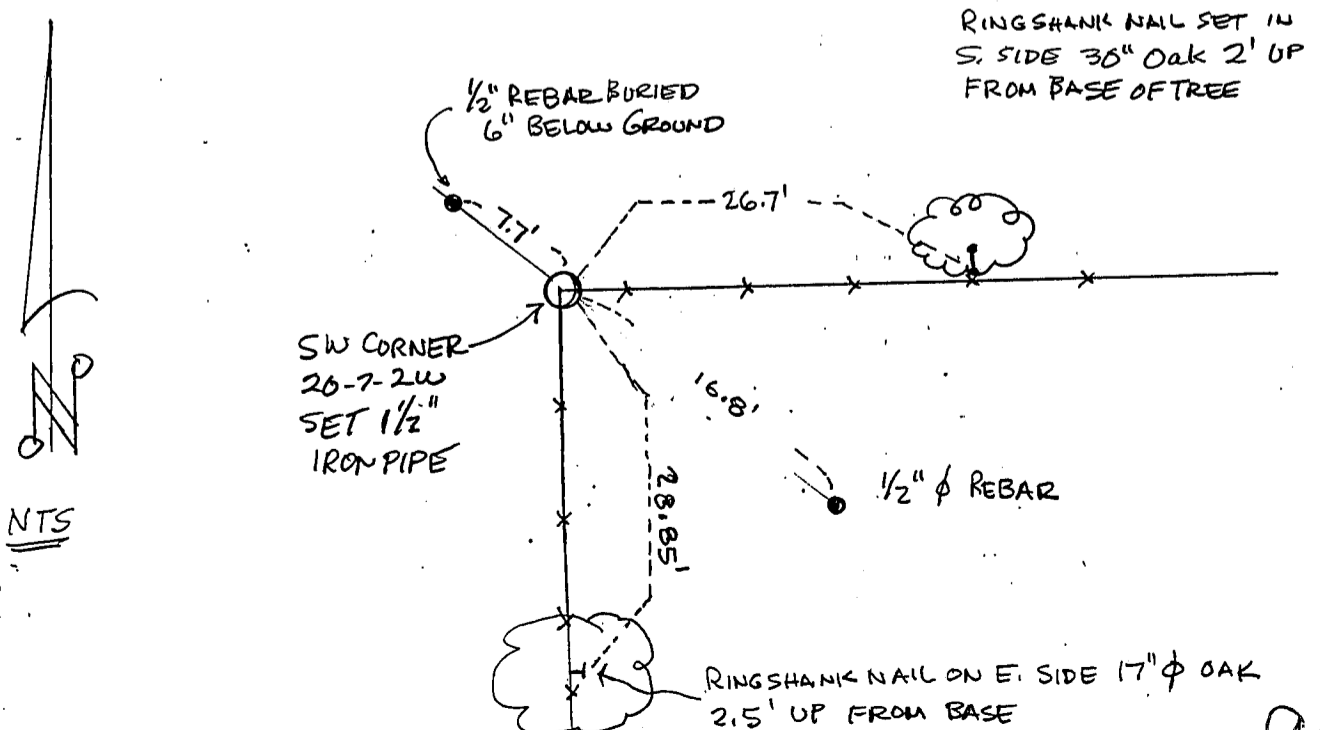 RINGSHANK NAIL SET IN
S. SIDE 30" Oak 2' UP
FROM BASE OF TREE
1/2" REBAR BURIED
6" BELOW GROUND
26.7'
7.7'
SW CORNER
20-7-2W
SET 1 1/2"
IRON PIPE
16.8'
1/2" ϕ REBAR
28.85'
N
NTS
RINGSHANK NAIL ON E. SIDE 17" ϕ OAK
2.5' UP FROM BASE